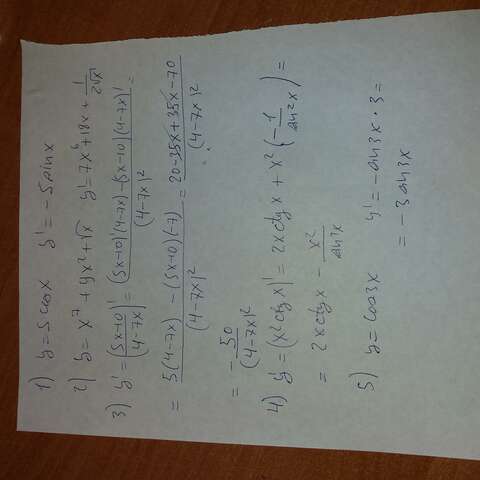 1) y=5cosx y'=-5sinx
2) y=x⁷+9x²+√x y'=7x⁶+18x+1/(2√x)
3) y'=((5x+10)/(4-7x))'=((5x+10)'(4-7x)-(5x+10)(4-7x)')/(4-7x)²=
=(5(4-7x)-(5x+10)(-7))/(4-7x)²=(20-35x+35x-70)/(4-7x)²
=-50/(4-7x)²
4) y'=(x²ctgx)'=2xctgx+x²(-1/sin²x)=
=2xctgx-x²/sin²x
5) y=cos3x y'=-sin3x·3=
=-3sin3x